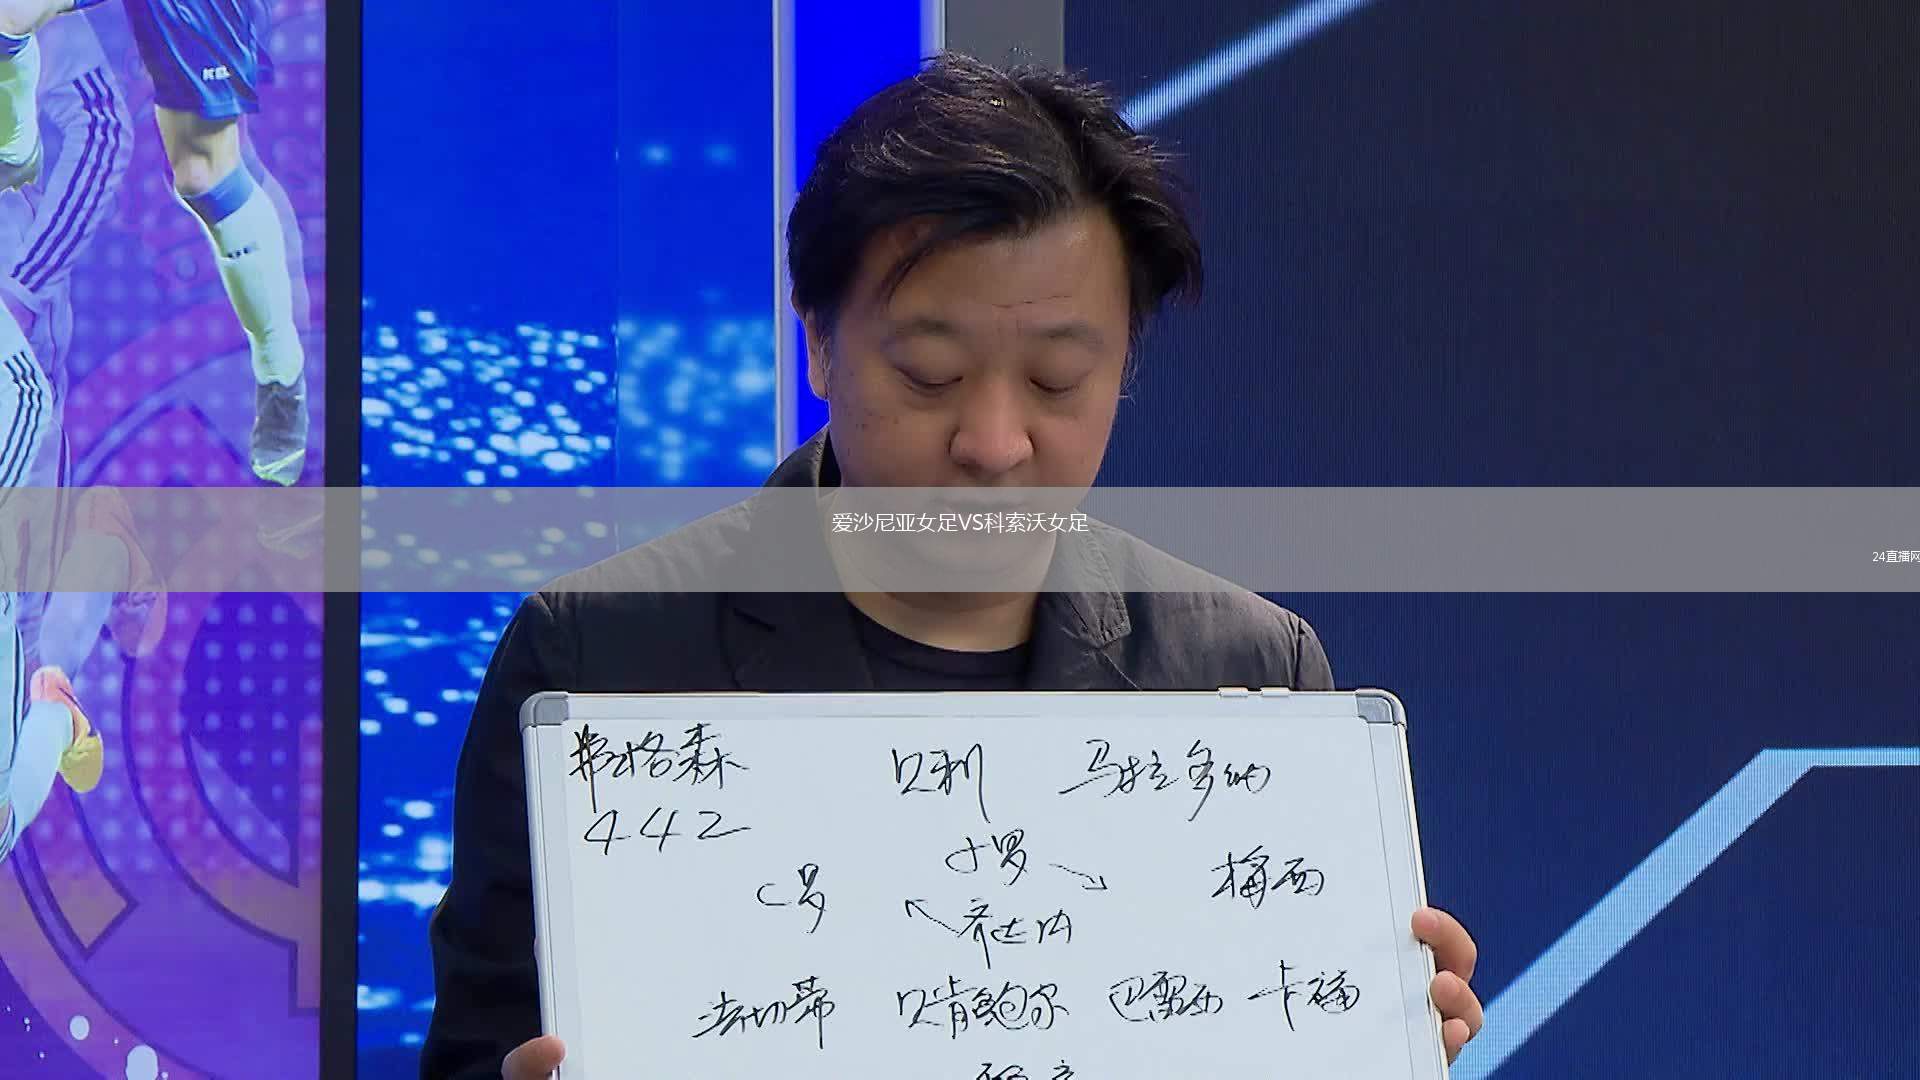 爱沙尼亚女足VS科索沃女足
24直播网
弗格森 贝利 马拉多纳
442
小罗
C罗 梅西
齐达内
法切蒂 贝肯鲍尔 巴雷西 卡福